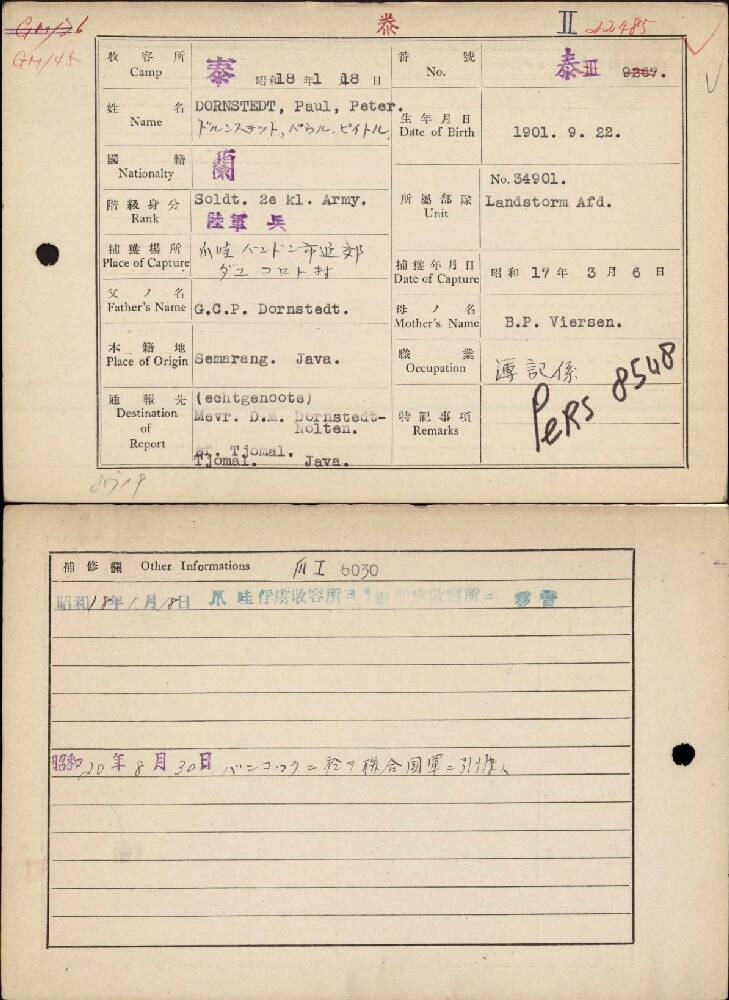 GM/26 泰 II 22485
GM/45
收容所 Camp 泰 昭和18年1月18日 番號 No. 泰III 9267.
姓名 Name DORNSTEDT, Paul, Peter.
ドルンステット, パウル. ピイトル 生年月日 Date of Birth 1901. 9. 22.
國籍 Nationalty 蘭
所屬部隊 Unit No. 34901.
Landstorm Afd.
階級身分 Rank Soldt. 2e kl. Army.
陸軍 兵
捕獲場所 Place of Capture 爪哇 バンドン市近郊
村
捕獲年月日 Date of Capture 昭和 17年 3月 6日
父ノ名 Father's Name G.C.P. Dornstedt.
母ノ名 Mother's Name B.P. Viersen.
本籍地 Place of Origin Semarang. Java.
職業 Occupation 簿記係
通報先 Destination of Report (echtgenoote)
Mevr. D.M. Dornstedt-
Nolten.
sf. Tjomal.
Tjomal. Java.
特記事項 Remarks
Pers 8548
補修欄 Other Informations 爪I 6030
昭和18年1月18日 爪哇俘虜收容所ヨリ泰俘虜收容所ニ 移管
昭和20年8月30日 バンコックニ於テ聯合国軍ニ引渡ス